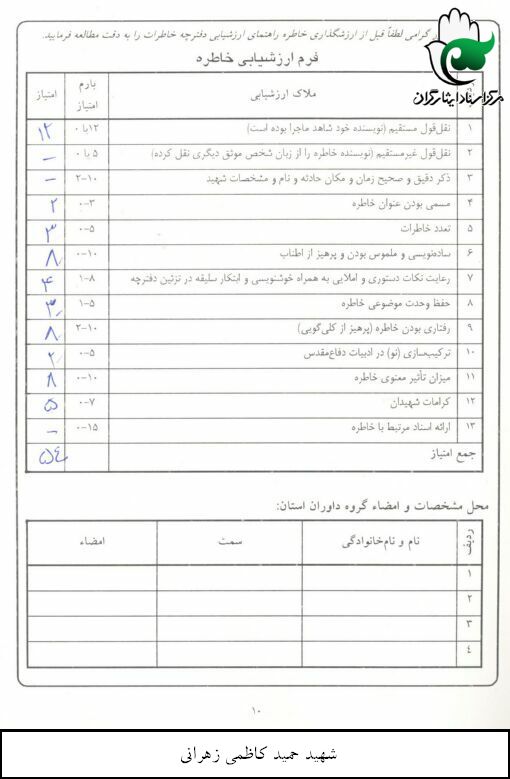 گرامی لطفاً قبل از ارزشگذاری خاطره راهنمای ارزشیابی دفترچه خاطرات را به دقت مطالعه فرمایید.
مرکز اسناد ایثارگران
فرم ارزشیابی خاطره
ملاک ارزشیابی بارم امتیاز امتیاز
۱ نقل‌قول مستقیم (نویسنده خود شاهد ماجرا بوده است) ۱۲ یا ۰ ۱۲
۲ نقل‌قول غیرمستقیم (نویسنده خاطره را از زبان شخص موثق دیگری نقل کرده) ۵ یا ۰ –
۳ ذکر دقیق و صحیح زمان و مکان حادثه و نام و مشخصات شهید ۲-۱۰ –
۴ مسمی بودن عنوان خاطره ۰-۳ ۲
۵ تعدد خاطرات ۰-۵ ۳
۶ ساده‌نویسی و ملموس بودن و پرهیز از اطناب ۰-۱۰ ۸
۷ رعایت نکات دستوری و املایی به همراه خوشنویسی و ابتکار سلیقه در تزئین دفترچه ۱-۸ ۴
۸ حفظ وحدت موضوعی خاطره ۱-۵ ۳
۹ رفتاری بودن خاطره (پرهیز از کلی‌گویی) ۲-۱۰ ۸
۱۰ ترکیب‌سازی (نو) در ادبیات دفاع‌مقدس ۰-۵ ۲
۱۱ میزان تأثیر معنوی خاطره ۰-۱۰ ۸
۱۲ کرامات شهیدان ۰-۷ ۵
۱۳ ارائه اسناد مرتبط با خاطره ۰-۱۵ –
جمع امتیاز ۵۴
محل مشخصات و امضاء گروه داوران استان:
ردیف نام و نام‌خانوادگی سمت امضاء
۱
۲
۳
۴
۱۰
شهید حمید کاظمی زهرانی